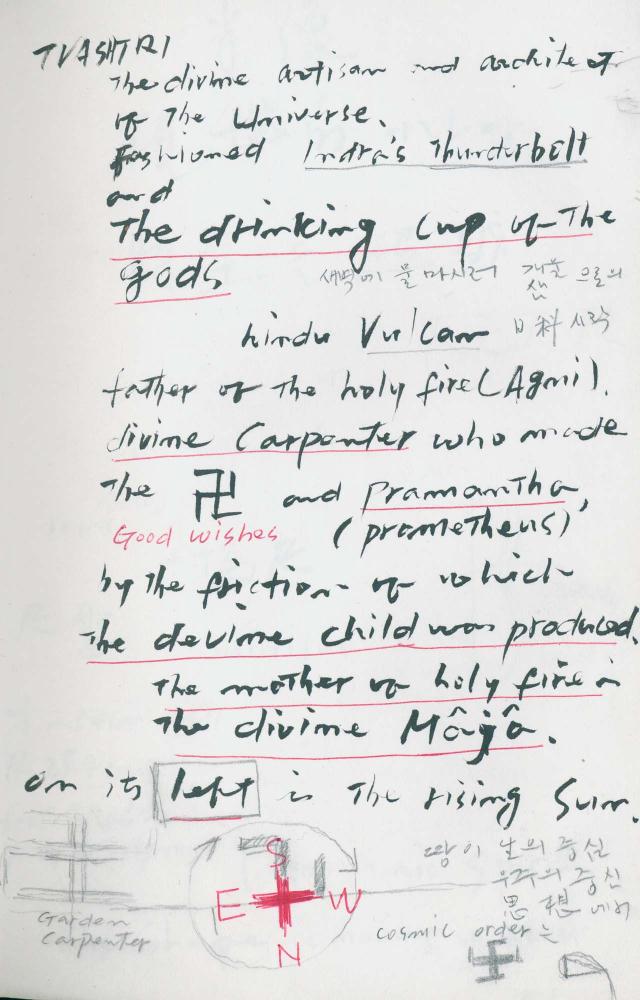 TVASHTRI
The divine artisan and architect
of The Universe.
fashioned Indra's Thunderbolt
and
The drinking cup of The
gods
새벽에 물 마시러
hindu Vulcan
father of The holy fire (Agni).
divine Carpenter who made
The 卍 and pramantha,
Good wishes (prometheus)
by The friction of which
The devine child was produced.
The mother of holy fire is
The divine Mâyâ.
on its left is The rising Sun.
S
E W
N
Garden
Carpenter
땅이 날의 중심
우주의 중심
思想에서
cosmic order는
卍